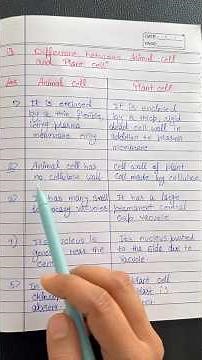 DATE:
PAGE:
Q. Difference between Animal cell
and Plant cell
Ans Animal cell
1) It is enclosed
by a thin flexible,
living plasma
membrane only
2) Animal cell has
no cellulose wall
has many small
vacuoles
4) Its nucleus is
near the
5)
absent
Plant cell
It is enclosed
by a thick, rigid
dead cell wall in
addition to plasma
membrane
cell wall of plant
cell made by cellulose
It has a large
permanent central
sap vacuole
Its nucleus pushed
to the side due to
vacuole
cell